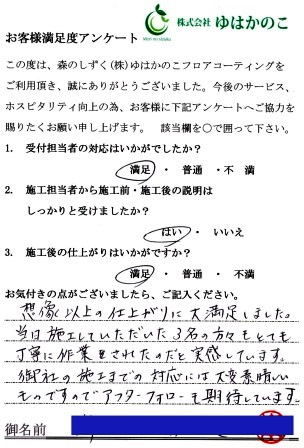 株式会社 ゆはかのこ
Mori no shizuku
お客様満足度アンケート
この度は、森のしずく(株)ゆはかのこフロアコーティングを
ご利用頂き、誠にありがとうございました。今後のサービス、
ホスピタリティ向上の為、お客様に下記アンケートへご協力を
賜りたくお願い申し上げます。 該当欄を〇で囲って下さい。
1. 受付担当者の対応はいかがでしたか?
満足 ・ 普通 ・不 満
2. 施工担当者から施工前・施工後の説明は
しっかりと受けましたか?
はい ・ いいえ
3. 施工後の仕上がりはいかがですか?
満足 ・ 普通 ・ 不 満
お気付きの点がございましたら、ご記入ください。
想像以上の仕上がりに大満足しました。
当日施工していただいた3名の方々もとても
丁寧に作業されたのだと実感しています。
御社の施工までの対応には大変素晴しい
ものですのでアフターフォローも期待しています。
御名前